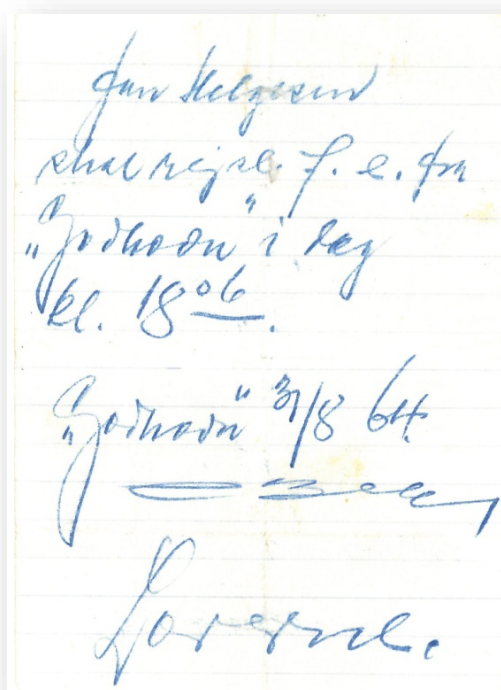 Jan Helgesen
skal rejse f. e. fra
„Godhavn" i dag
kl. 18⁰⁶.
„Godhavn" 31/8 64.